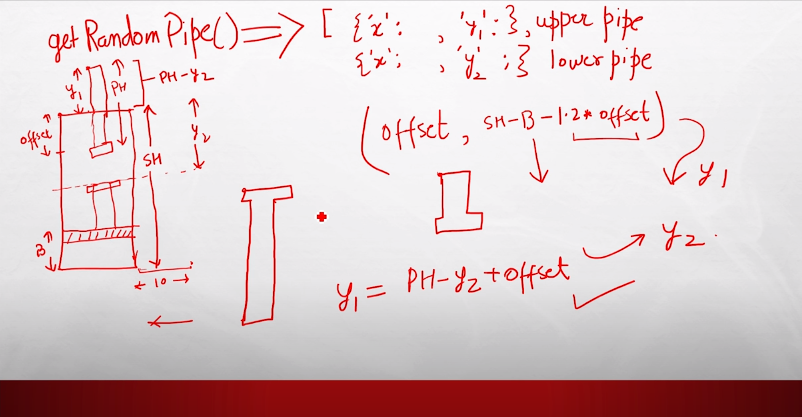 getRandomPipe() ⇒ [ {'x': , 'y1': }, upper pipe
{'x': , 'y2' : } lower pipe
y1
PH
PH-y2
offset
y2
SH
B
10
(offset, SH-B-1.2* offset)
y1
y2.
y1 = PH-y2+offset